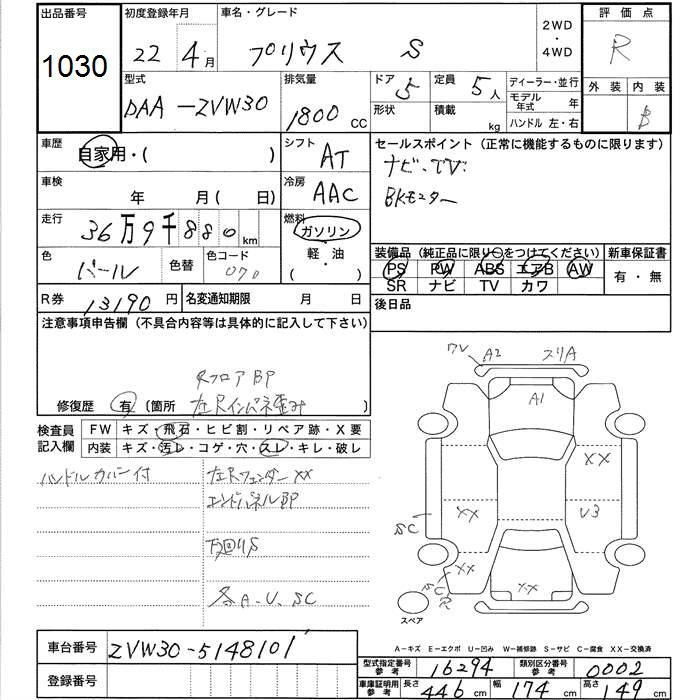 出品番号 初度登録年月 車名・グレード 2WD ・ 4WD 評価点
1030 22 4月 プリウス S R
型式 排気量 ドア 定員 ディーラー・並行 外装 内装
DAA-ZVW30 1800 CC 5 5人 モデル年式 年 B
形状 積載 kg ハンドル 左・右
車歴 自家用・( ) シフト AT セールスポイント (正常に機能するものに限ります)
ナビ・TV
車検 年 月( 日) 冷房 AAC BKモニター
走行 36万9千880km 燃料 ガソリン
軽・油
( )
装備品 (純正品に限り○をつけてください) 新車保証書
色 パール 色替 色コード 070 PS PW ABS エアB AW 有・無
SR ナビ TV カワ
R券 13190円 名変通知期限 月 日 後日品
注意事項申告欄 (不具合内容等は具体的に記入して下さい)
RフロアBP
修復歴 有 (箇所 左Rインパネ歪み)
検査員記入欄 FW キズ・飛石・ヒビ割・リペア跡・X要
内装 キズ・汚レ・コゲ・穴・スレ・キレ・破レ
ハンドルカバー付 左Rフェンダー XX
エンドパネルBP
下回りS
各A.U.SC
ワレ A2 スリA
A1
XX
XX U3
SC
XX
XX
スペア
A-キズ E-エクボ U-凹み W-補修跡 S-サビ C-腐食 XX-交換済
車台番号 ZVW30-5148101
登録番号
型式指定番号参考 16294 類別区分番号参考 0002
車庫証明用参考 長さ 446cm 幅 174cm 高さ 149cm